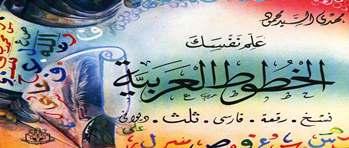 مهدى السيد محمود
علم نفسك
الخطوط العربية
نسخ . رقعة . فارسى . ثلث . ديوانى